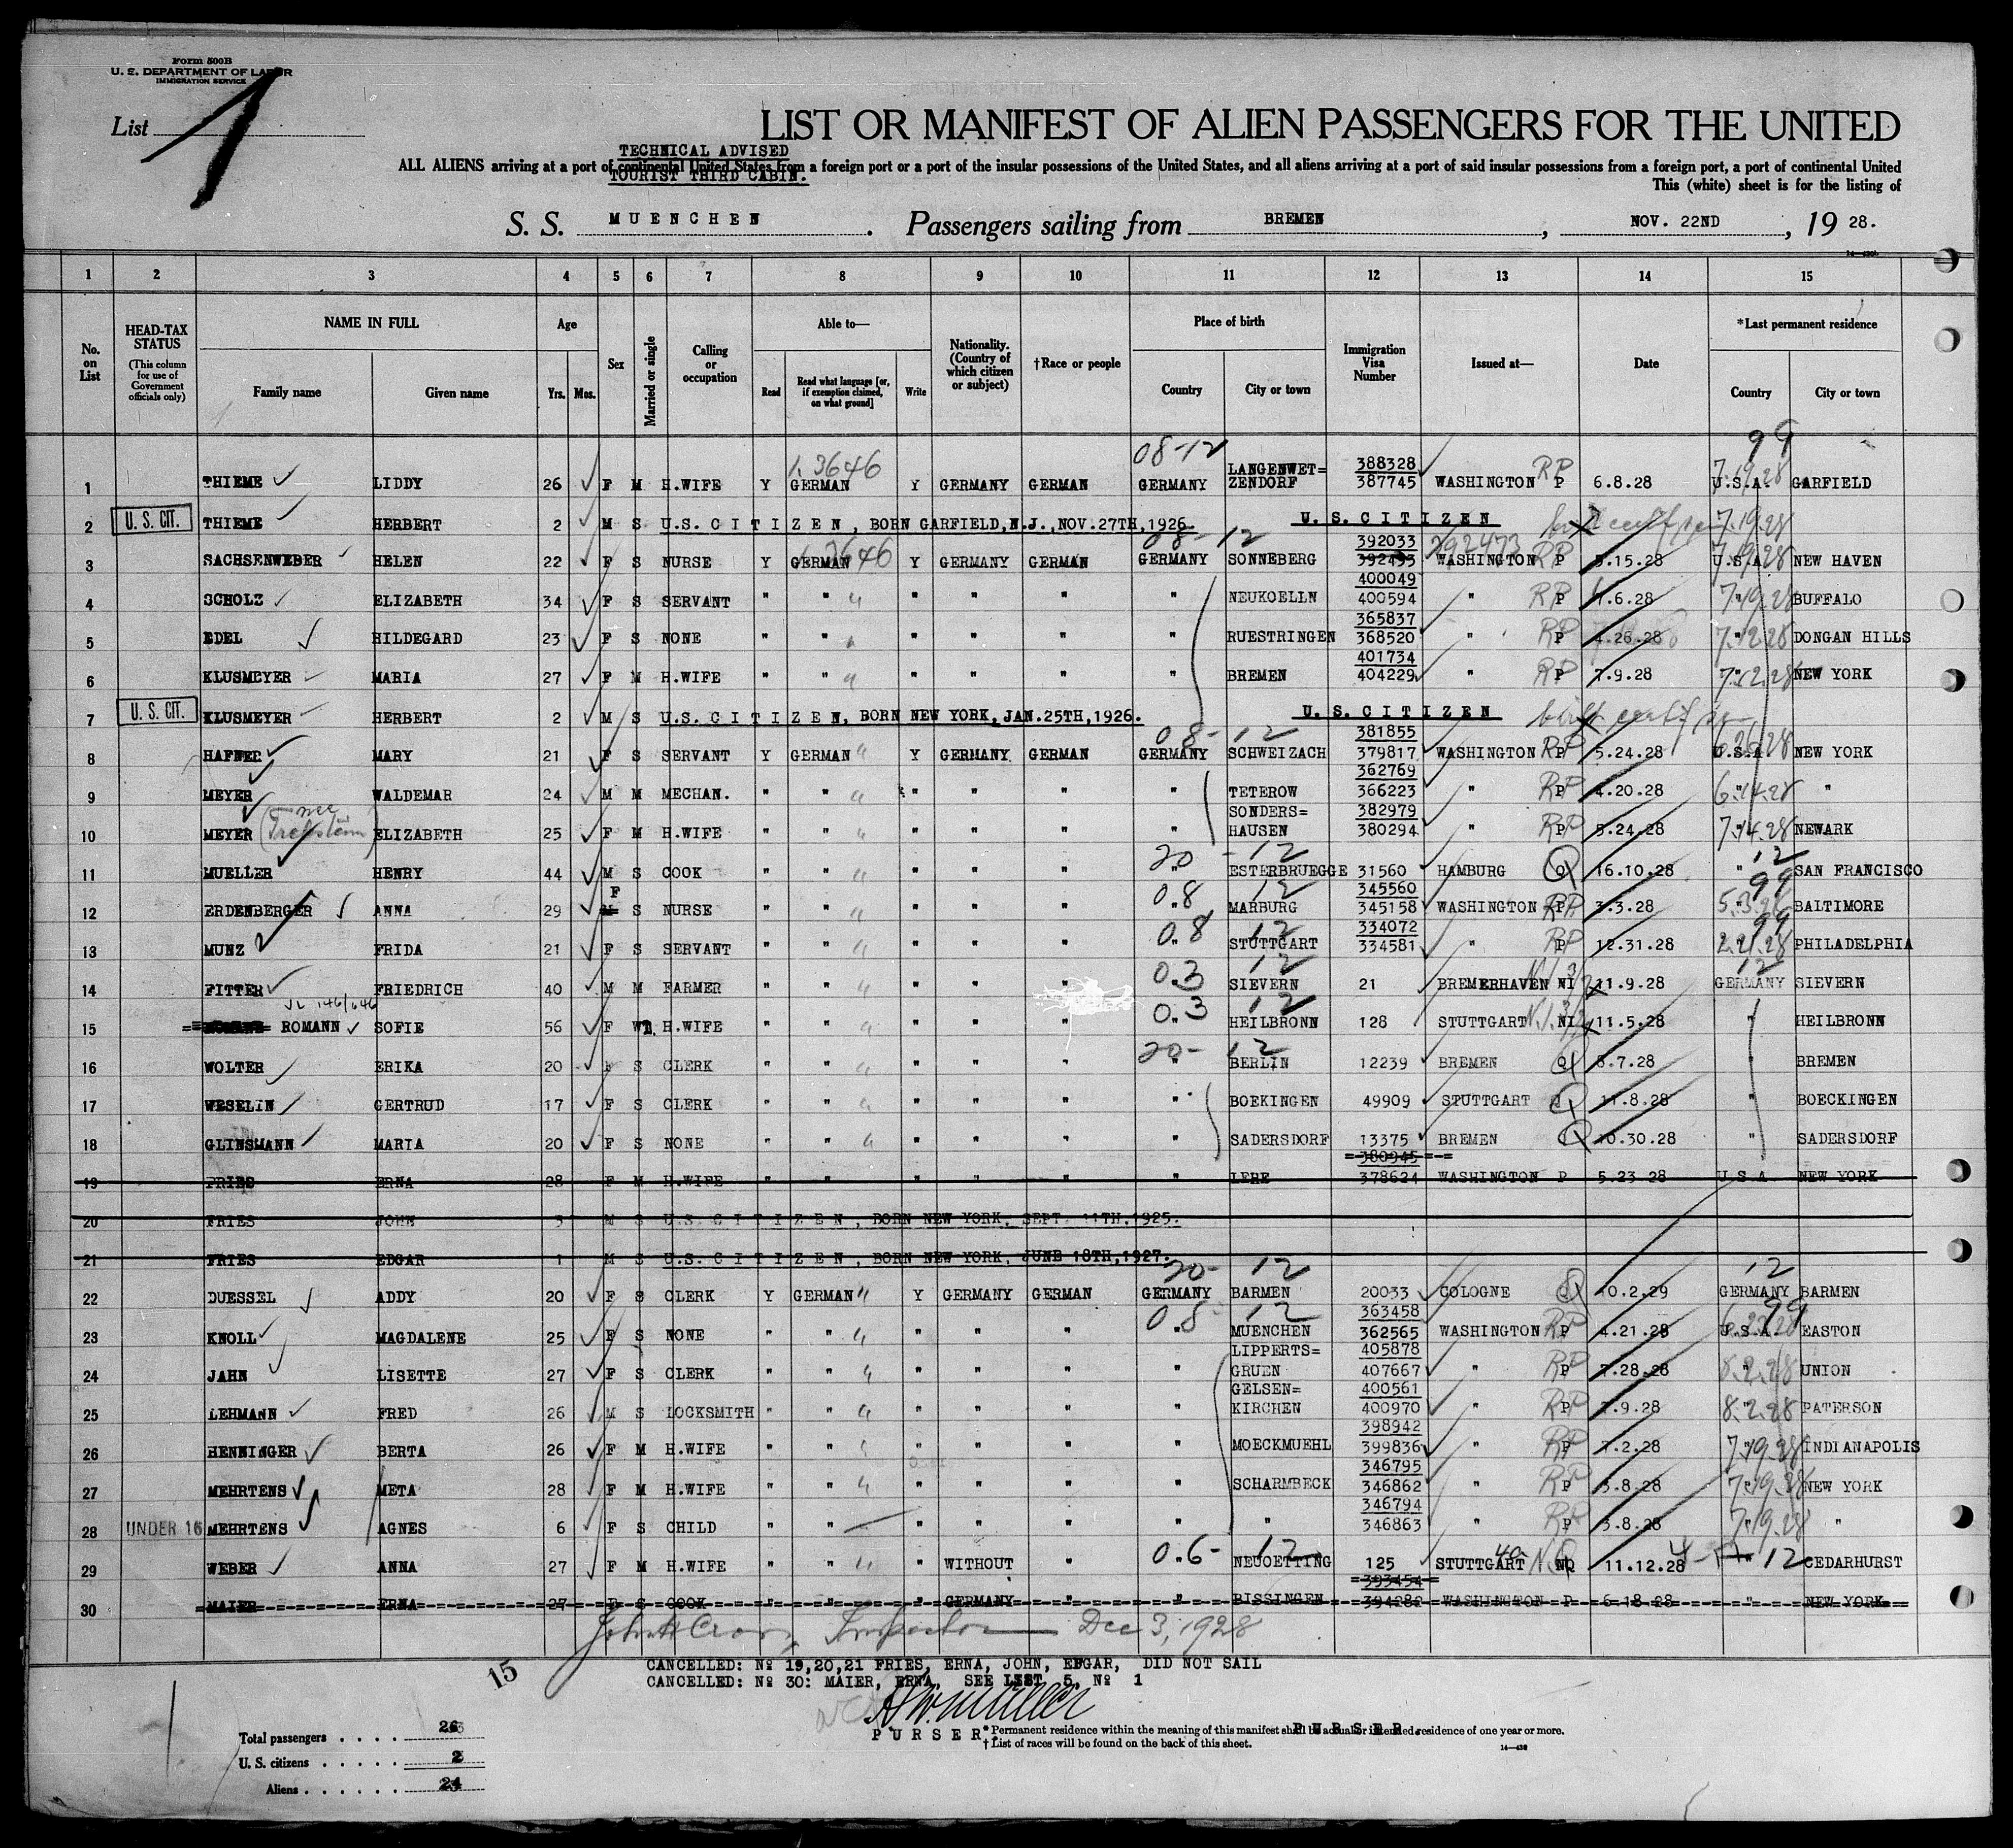 Form 500B
U. S. DEPARTMENT OF LABOR
IMMIGRATION SERVICE
List 1
LIST OR MANIFEST OF ALIEN PASSENGERS FOR THE UNITED
TECHNICAL ADVISED
ALL ALIENS arriving at a port of continental United States from a foreign port or a port of the insular possessions of the United States, and all aliens arriving at a port of said insular possessions from a foreign port, a port of continental United
TOURIST THIRD CABIN.
This (white) sheet is for the listing of
S. S. MUENCHEN. Passengers sailing from BREMEN, NOV. 22ND, 19 28.
1 2 3 4 5 6 7 8 9 10 11 12 13 14 15
No. on List
HEAD-TAX STATUS (This column for use of Government officials only)
NAME IN FULL Family name Given name
Age Yrs. Mos.
Sex
Married or single
Calling or occupation
Able to— Read Read what language [or, if exemption claimed, on what ground] Write
Nationality. (Country of which citizen or subject)
†Race or people
Place of birth Country City or town
Immigration Visa Number
Issued at—
Date
*Last permanent residence Country City or town
08-12 99
1 THIEME LIDDY 26 F M H.WIFE Y GERMAN Y GERMANY GERMAN GERMANY LANGENWET=ZENDORF 388328 387745 WASHINGTON RP P 6.8.28 U.S.A. 7.19.28 GARFIELD
2 U. S. CIT. THIEME HERBERT 2 M S U.S. CITIZEN, BORN GARFIELD, N.J., NOV. 27TH, 1926. U. S. CITIZEN 7.19.28
3 SACHSENWEBER HELEN 22 F S NURSE Y GERMAN Y GERMANY GERMAN GERMANY 08-12 SONNEBERG 392033 392495 292473 WASHINGTON RP P 5.15.28 U.S.A. 7.19.28 NEW HAVEN
4 SCHOLZ ELIZABETH 34 F S SERVANT " " " " " " NEUKOELLN 400049 400594 " RP P 7.6.28 " 7.19.28 BUFFALO
5 EDEL HILDEGARD 23 F S NONE " " " " " " RUESTRINGEN 365837 368520 " RP P 4.26.28 " 7.12.28 DONGAN HILLS
6 KLUSMEYER MARIA 27 F M H.WIFE " " " " " " BREMEN 401734 404229 " RP P 7.9.28 " 7.12.28 NEW YORK
7 U. S. CIT. KLUSMEYER HERBERT 2 M S U.S. CITIZEN, BORN NEW YORK, JAN. 25TH, 1926. U. S. CITIZEN
8 HAFNER MARY 21 F S SERVANT Y GERMAN Y GERMANY GERMAN GERMANY 08-12 SCHWEIZACH 381855 379817 WASHINGTON RP P 5.24.28 U.S.A. NEW YORK
9 MEYER WALDEMAR 24 M M MECHAN. " " " " " " TETEROW 362769 366223 " RP P 4.20.28 " 6.14.28 "
10 MEYER (nee Trefstein) ELIZABETH 25 F M H.WIFE " " " " " " SONDERS=HAUSEN 382979 380294 " RP P 5.24.28 " 7.14.28 NEWARK
11 MUELLER HENRY 44 M S COOK " " " " " 20-12 " ESTERBRUEGGE 31560 HAMBURG Q 16.10.28 12 " SAN FRANCISCO
12 ERDENBERGER ANNA 29 F S NURSE " " " " " 0.8 12 MARBURG 345560 345158 WASHINGTON RP P 3.3.28 99 " BALTIMORE
13 MUNZ FRIDA 21 F S SERVANT " " " " " 0.8 12 STUTTGART 334072 334581 " RP P 12.31.28 99 " 2.21.28 PHILADELPHIA
14 FITTER FRIEDRICH 40 M M FARMER " " " " " 0.3 12 SIEVERN 21 BREMERHAVEN NI 11.9.28 12 GERMANY SIEVERN
15 ROMANN SOFIE 56 F WD. H.WIFE " " " " " 0.3 12 HEILBRONN 128 STUTTGART NI 11.5.28 " HEILBRONN
16 WOLTER ERIKA 20 F S CLERK " " " " " 20-12 BERLIN 12239 BREMEN Q 8.7.28 " BREMEN
17 WESELIN GERTRUD 17 F S CLERK " " " " " " BOEKINGEN 49909 STUTTGART Q 11.8.28 " BOECKINGEN
18 GLINSMANN MARIA 20 F S NONE " " " " " " SADERSDORF 13375 BREMEN Q 10.30.28 " SADERSDORF
19 FRIES ERNA 28 F M H.WIFE " " " " " " LEHE 380945 378624 WASHINGTON P 5.23.28 U.S.A. NEW YORK
20 FRIES JOHN 3 M S U.S. CITIZEN, BORN NEW YORK, SEPT. 11TH, 1925.
21 FRIES EDGAR 1 M S U.S. CITIZEN, BORN NEW YORK, JUNE 18TH, 1927.
22 DUESSEL ADDY 20 F S CLERK Y GERMAN Y GERMANY GERMAN GERMANY 20-12 BARMEN 20033 COLOGNE Q 10.2.29 12 GERMANY BARMEN
23 KNOLL MAGDALENE 25 F S NONE " " " " " 08-12 MUENCHEN 363458 362565 WASHINGTON RP P 4.21.28 99 U.S.A. EASTON
24 JAHN LISETTE 27 F S CLERK " " " " " " LIPPERTS=GRUEN 405878 407667 " RP P 7.28.28 " 8.2.28 UNION
25 LEHMANN FRED 26 M S LOCKSMITH " " " " " " GELSEN=KIRCHEN 400561 400970 " RP P 7.9.28 " 8.2.28 PATERSON
26 HENNINGER BERTA 26 F M H.WIFE " " " " " " MOECKMUEHL 398942 399836 " RP P 7.2.28 " 7.19.28 INDIANAPOLIS
27 MEHRTENS META 28 F M H.WIFE " " " " " " SCHARMBECK 346795 346862 " RP P 3.8.28 " 7.19.28 NEW YORK
28 UNDER 16 MEHRTENS AGNES 6 F S CHILD " " " " " " " 346794 346863 " RP P 3.8.28 " 7.19.28 "
29 WEBER ANNA 27 F M H.WIFE " " " WITHOUT " 0.6-12 NEUOETTING 125 STUTTGART NQ 11.12.28 " 12 CEDARHURST
30 MAIER ERNA 27 F S COOK " " " GERMANY " " BISSINGEN 393454 394282 WASHINGTON P 6.18.28 " NEW YORK
Inspector Dec 3, 1928
15
CANCELLED: No 19,20,21 FRIES, ERNA, JOHN, EDGAR, DID NOT SAIL
CANCELLED: No 30: MAIER, ERNA, SEE LIST 5, No 1
PURSER. PURSER.
* Permanent residence within the meaning of this manifest shall be actual or intended residence of one year or more.
† List of races will be found on the back of this sheet.
Total passengers . . . . 26
U. S. citizens . . . . . 2
Aliens . . . . . . 24